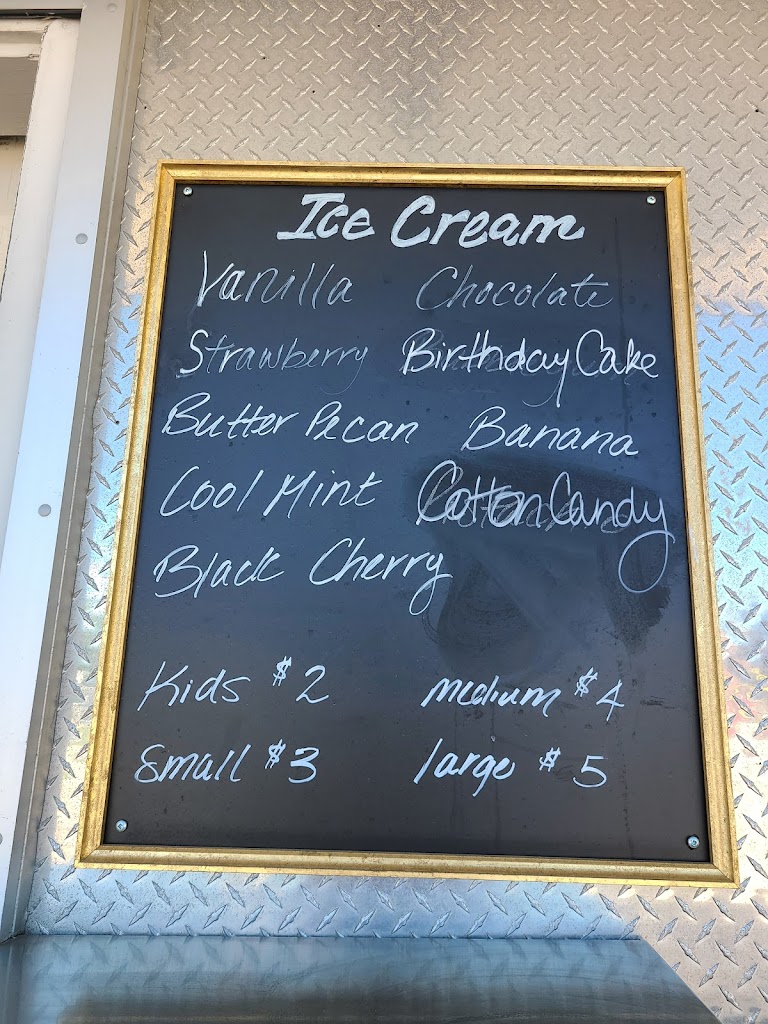 Ice Cream
Vanilla Chocolate
Strawberry Birthday Cake
Butter Pecan Banana
Cool Mint Cotton Candy
Black Cherry
Kids $2 medium $4
Small $3 large $5